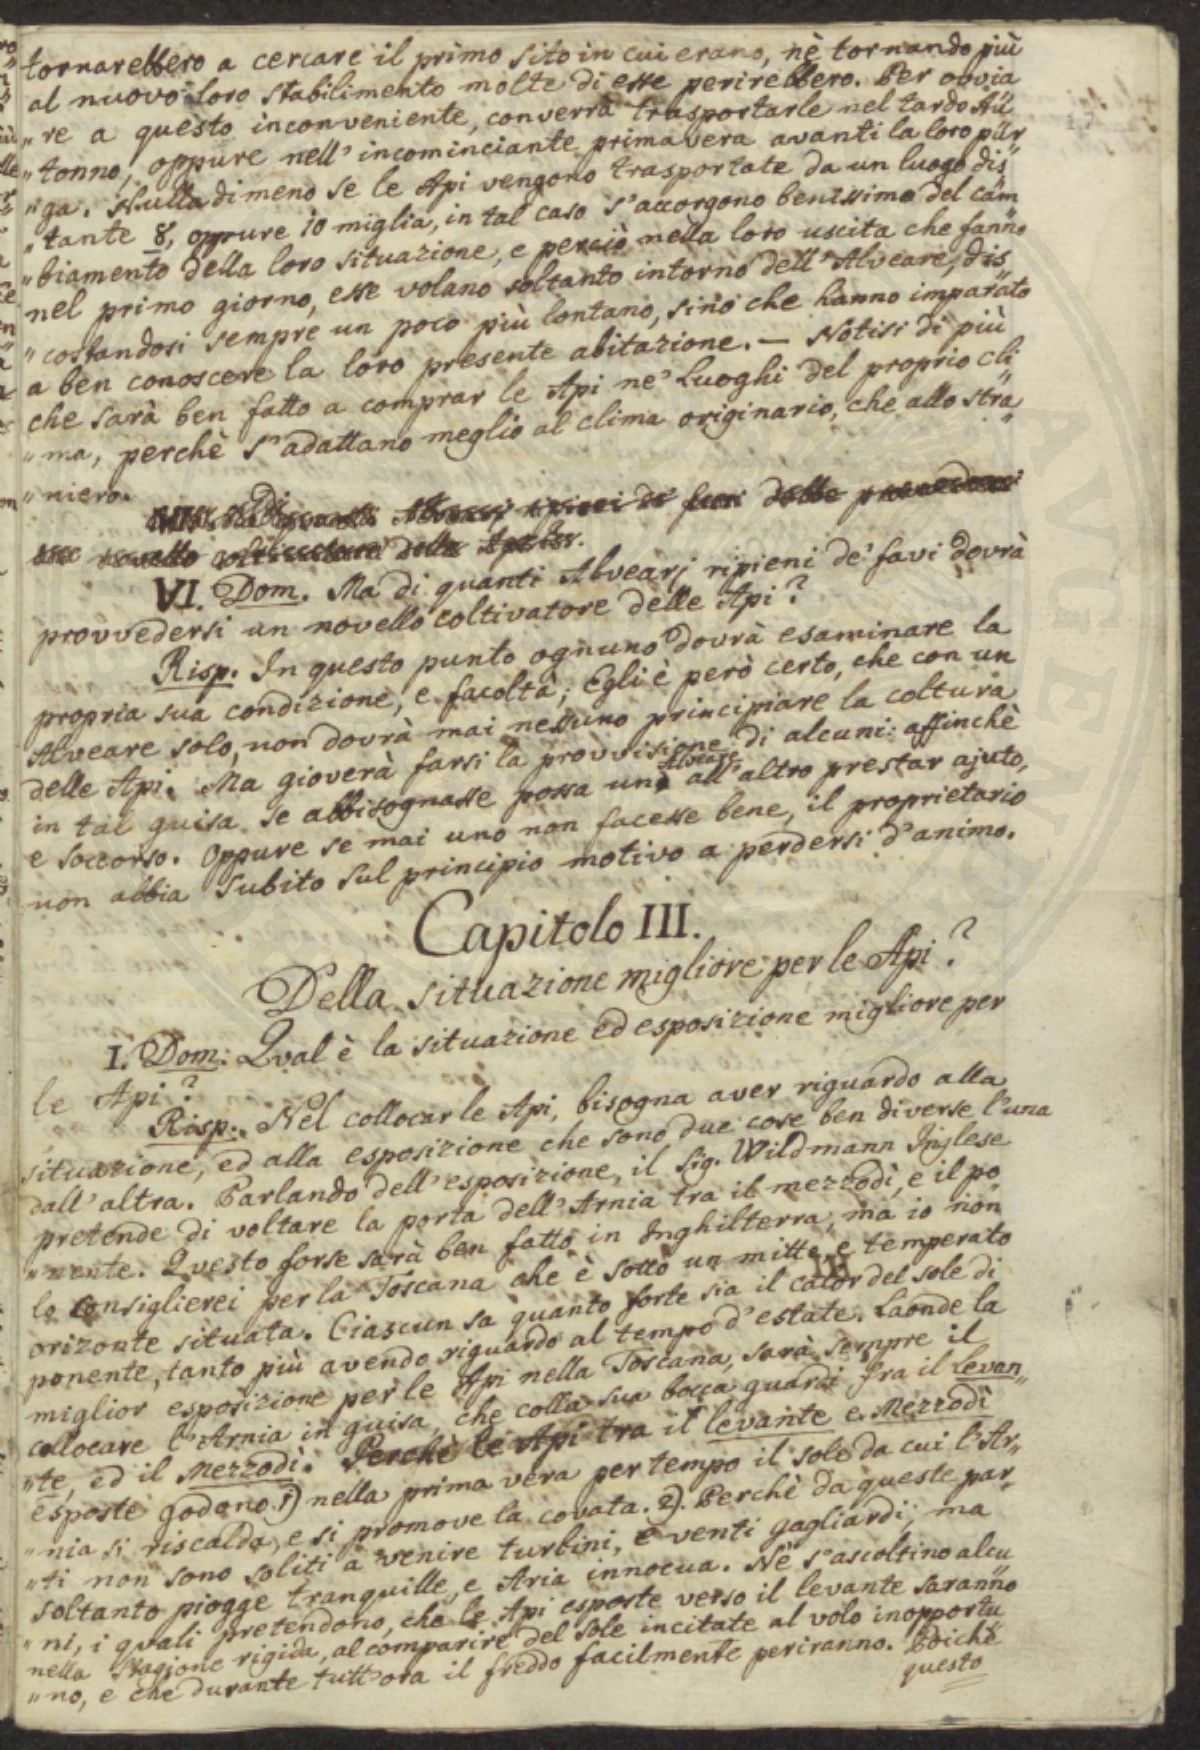 tornarebbero a cercare il primo sito in cui erano, nè tornando più
al nuovo loro stabilimento molte di esse perirebbero. Per ovvia
„re a questo inconveniente, converrà trasportarle nel tardo Au„
„tonno, oppure nell' incominciante primavera avanti la loro pur„
„ga. Nulladimeno se le Api vengono trasportate da un luogo dis„
„tante 8, oppure 10 miglia, in tal caso s'accorgono benissimo del cam„
„biamento della loro situazione, e perciò nella loro uscita che fanno
nel primo giorno, esse volano soltanto intorno dell'Alveare, dis„
„costandosi sempre un poco più lontano, sino che hanno imparato
a ben conoscere la loro presente abitazione. — Notisi di più
che sarà ben fatto a comprar le Api ne' Luoghi del proprio cli„
„ma, perchè s'adattano meglio al clima originario, che allo stra„
„niero.
VI. Dom. Ma di quanti Alvearj ripieni de' favi dovrà
provvedersi un novello coltivatore delle Api?
Risp. In questo punto ognuno dovrà esaminare la
propria sua condizione, e facoltà; Egli è però certo, che con un
Alveare solo, non dovrà mai nessuno principiare la coltura
delle Api. Ma gioverà farsi la provvisione di alcuni: affinchè
in tal guisa se abbisognasse possa uno Alveare all'altro prestar ajuto,
e soccorso. Oppure se mai uno non facesse bene, il proprietario
non abbia subito sul principio motivo a perdersi d'animo.
Capitolo III.
Della situazione migliore per le Api?
I. Dom: Qual è la situazione ed esposizione migliore per
le Api?
Risp: Nel collocar le Api, bisogna aver riguardo alla
situazione, ed alla esposizione che sono due cose ben diverse l'una
dall'altra. Parlando dell'esposizione, il Sig. Wildmann Inglese
pretende di voltare la porta dell'Arnia tra il mezzodì, e il po„
„nente. Questo forse sarà ben fatto in Inghilterra, ma io non
lo consiglierei per la Toscana che è sotto un mitte e temperato
orizonte situata. Ciascun sa quanto forte sia il calor del sole di
ponente, tanto più avendo riguardo al tempo d'estate. Laonde la
miglior esposizione per le Api nella Toscana, sarà sempre il
collocare l'Arnia in guisa, che colla sua bocca guardi fra il Levan„
„te, ed il Mezzodì. Perchè le Api tra il levante e Mezzodì
esposte godono 1) nella prima vera per tempo il sole da cui l'Ar„
„nia si riscalda, e si promove la covata. 2). Perchè da queste par„
„ti non sono soliti a venire turbini, e venti gagliardi; ma
soltanto piogge tranquille, e Aria innocua. Nè s'ascoltino alcu„
„ni, i quali pretendono, che le Api esposte verso il levante saranno
nella Stagione rigida, al comparire del sole incitate al volo inopportu„
„no, e che durante tutt'ora il freddo facilmente periranno. Poichè
questo